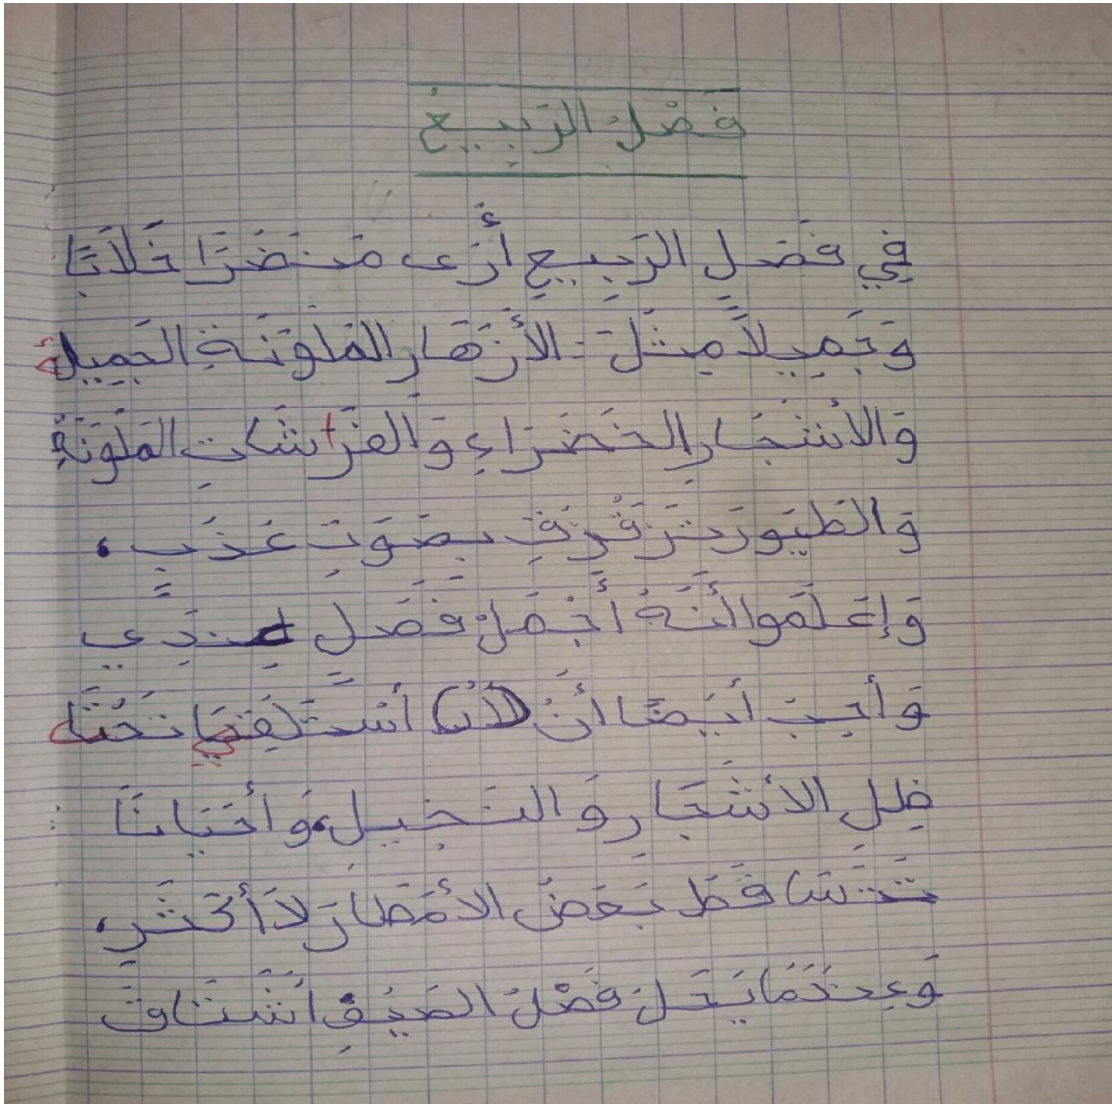 فَصْلُ الرَبِيعُ
فِي فَصَلِ الرَبِيعِ أَرَى مَنضَرًا خَلَابًا
وَجَمِيلاً مِثلَ الأَزهَارِ المَلَوَنَةِ الجَمِيلة
وَالأشجَارِ الخَضرَاءِ وَالفرَاشَاتِ المَلَوَنَةِ
وَالطيُور تزَقزِقِ بِصَوتِ عَذبٍ،
وَإعلَموا أنَهُ أجمَلُ فَصَل عِندِي
وَأحِبُ أيضا أنْ أستَلقِي تَحت
ظِلِ الأشجَارِ وَالنَخِيلِ، وَأحيَانًا
تتَسَاقَط بَعَضُ الأمَطَارَ لاَ أكثَر،
وَعِندَمَا يَحِلَ فَصْلَ الصَيفِ اشتَاق